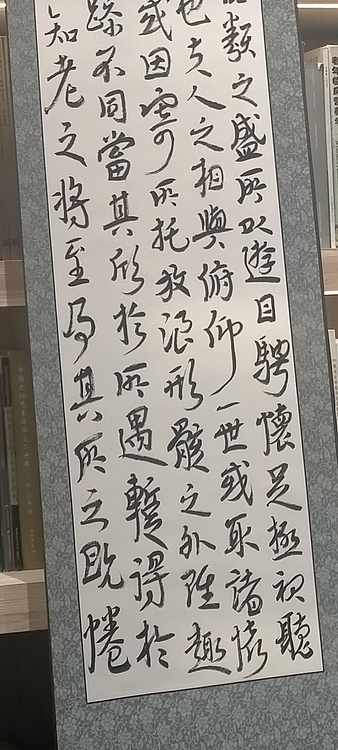 類之盛所以遊目騁懷足極視聽
也夫人之相與俯仰一世或取諸懷
或因寄所托放浪形骸之外雖趣
躁不同當其欣於所遇暫得於
知老之將至及其所之既惓